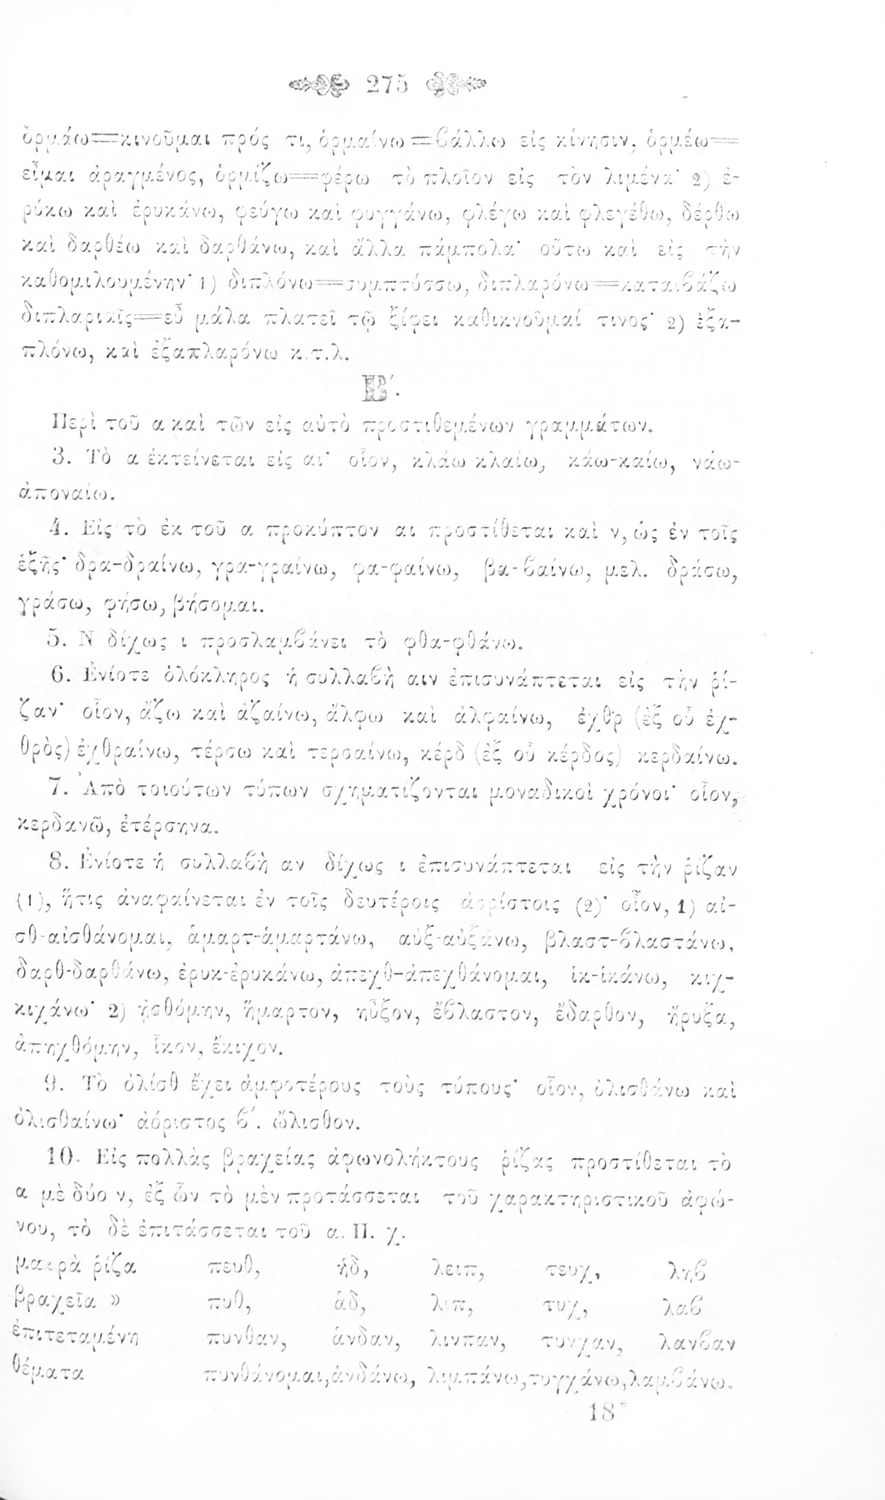 275
ὁρμάω=κινοῦμαι πρός τι, ὁρμαίνω=ϐάλλω εἰς κίνησιν, ὁρμέω=
εἶμαι ἀραγμένος, ὁρμίζω=φέρω τὸ πλοῖον εἰς τὸν λιμένα· 2) ἐ-
ρύκω καὶ ἐρυκάνω, φεύγω καὶ φυγγάνω, φλέγω καὶ φλεγέθω, δέρθω
καὶ δαρθέω καὶ δαρθάνω, καὶ ἄλλα πάμπολα· οὕτω καὶ εἰς τὴν
καθομιλουμένην· 1) διπλόνω=συμπτύσσω, διπλαρόνω=καταιϐάζω
διπλαριαῖς=εὖ μάλα πλατεῖ τῷ ξίφει καθικνοῦμαί τινος· 2) ἐξα-
πλόνω, καὶ ἐξαπλαρόνω κ.τ.λ.
Β΄.
Περὶ τοῦ α καὶ τῶν εἰς αὐτὸ προστιθεμένων γραμμάτων.
3. Τὸ α ἐκτείνεται εἰς αι· οἷον, κλάω-κλαίω, κάω-καίω, νάω-
ἀποναίω.
4. Εἰς τὸ ἐκ τοῦ α προκύπτον αι προστίθεται καὶ ν, ὡς ἐν τοῖς
ἑξῆς· δρα-δραίνω, γρα-γραίνω, φα-φαίνω, βα-ϐαίνω, μελ. δράσω,
γράσω, φήσω, βήσομαι.
5. Ν δίχως ι προσλαμϐάνει τὸ φθα-φθάνω.
6. Ἐνίοτε ὁλόκληρος ἡ συλλαϐὴ αιν ἐπισυνάπτεται εἰς τὴν ῥί-
ζαν· οἷον, ἄζω καὶ ἀζαίνω, ἄλφω καὶ ἀλφαίνω, ἐχθρ (ἐξ οὗ ἐχ-
θρὸς) ἐχθραίνω, τέρσω καὶ τερσαίνω, κέρδ (ἐξ οὗ κέρδος) κερδαίνω.
7. Ἀπὸ τοιούτων τύπων σχηματίζονται μοναδικοὶ χρόνοι· οἷον,
κερδανῶ, ἐτέρσηνα.
8. Ἐνίοτε ἡ συλλαϐὴ αν δίχως ι ἐπισυνάπτεται εἰς τὴν ῥίζαν
(1), ἥτις ἀναφαίνεται ἐν τοῖς δευτέροις ἀορίστοις (2)· οἷον, 1) αἰ-
σθ-αἰσθάνομαι, ἁμαρτ-ἁμαρτάνω, αὐξ-αὐξάνω, βλαστ-ϐλαστάνω,
δαρθ-δαρθάνω, ἐρυκ-ἐρυκάνω, ἀπεχθ-ἀπεχθάνομαι, ἱκ-ἱκάνω, κιχ-
κιχάνω· 2) ᾐσθόμην, ἥμαρτον, ηὖξον, ἔϐλαστον, ἔδαρθον, ἤρυξα,
ἀπηχθόμην, ἷκον, ἔκιχον.
9. Τὸ ὀλίσθ ἔχει ἀμφοτέρους τοὺς τύπους· οἷον, ὀλισθάνω καὶ
ὀλισθαίνω· ἀόριστος ϐ΄. ὤλισθον.
10. Εἰς πολλὰς βραχείας ἀφωνολήκτους ῥίζας προστίθεται τὸ
α μὲ δύο ν, ἐξ ὧν τὸ μὲν προτάσσεται τοῦ χαρακτηριστικοῦ ἀφώ-
νου, τὸ δὲ ἐπιτάσσεται τοῦ α. Π. χ.
μακρὰ ῥίζα πευθ, ἡδ, λειπ, τευχ, ληϐ
βραχεῖα » πυθ, ἁδ, λιπ, τυχ, λαϐ
ἐπιτεταμένη πυνθαν, ἁνδαν, λινπαν, τυνχαν, λανϐαν
θέματα πυνθάνομαι, ἁνδάνω, λιμπάνω, τυγχάνω, λαμϐάνω.
18*